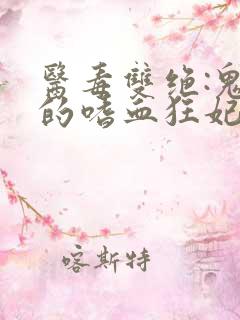 醫毒雙绝:鬼
的嗜血狂妃
喀斯特